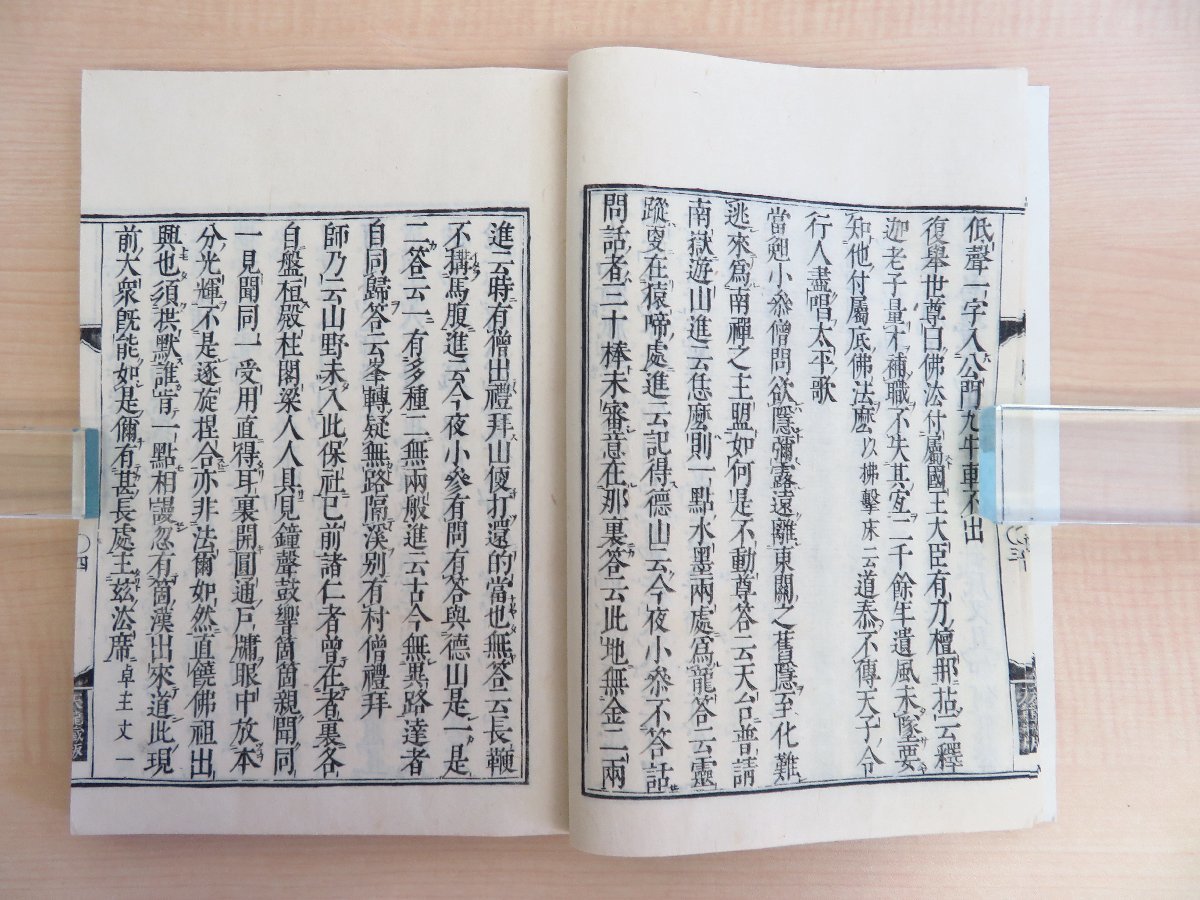 低聲一字入公門九牛車不出
復舉世尊曰佛法付屬國王大臣有力檀那拈云釋
迦老子量才補職不失其宜二千餘年遺風未墜要
知他付屬底佛法麼以拂擊床云道泰不傳天子令
行人盡唱太平歌
當晚小參僧問欲隱彌露遠離東關之舊隱至化難
逃來爲南禪之主盟如何是不動尊答云天台普請
南嶽遊山進云恁麼則一點水墨兩處爲龍答云靈
蹤只在猿啼處進云記得德山云今夜小參不答話
問話者三十棒未審意在那裏答云此地無金二兩
進云時有僧出禮拜山便打還的當也無答云長鞭
不搆馬腹進云今夜小參有問有答與德山是一是
二答云一有多種二無兩般進云古今無異路達者
自同歸答云峯轉疑無路隔溪別有村僧禮拜
師乃云山野未入此保社已前諸仁者曾在者裏各
自盤桓殿柱閣梁人人具見鐘聲鼓響箇箇親聞同
一見聞同一受用直得耳裏開圓通戶牖眼中放本
分光輝不是逐旋捏合亦非法爾如然直饒佛祖出
興也須拱默誰肯一點相謾忽有箇漢出來道此現
前大衆既能如是儞有甚長處主茲法席卓主丈一
四